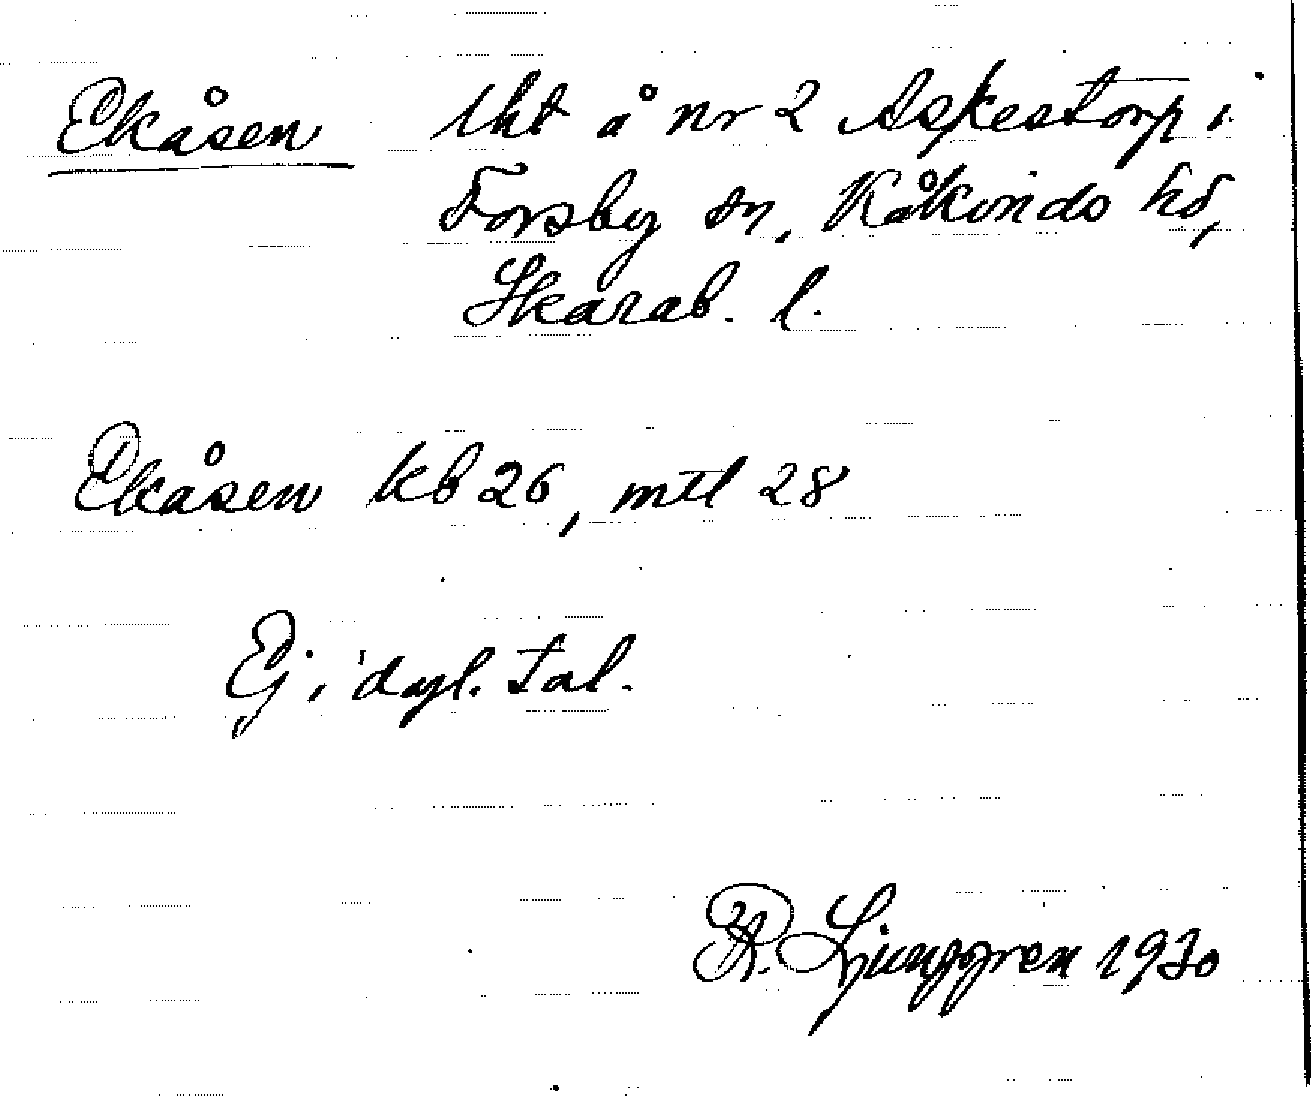 Ekåsen lht å nr 2 Askestorp i
Forsby sn, Kåkinds hd,
Skarab. l.
Ekåsen kb 26, mtl 28
Ej i dagl. tal.
R. Ljunggren 1930